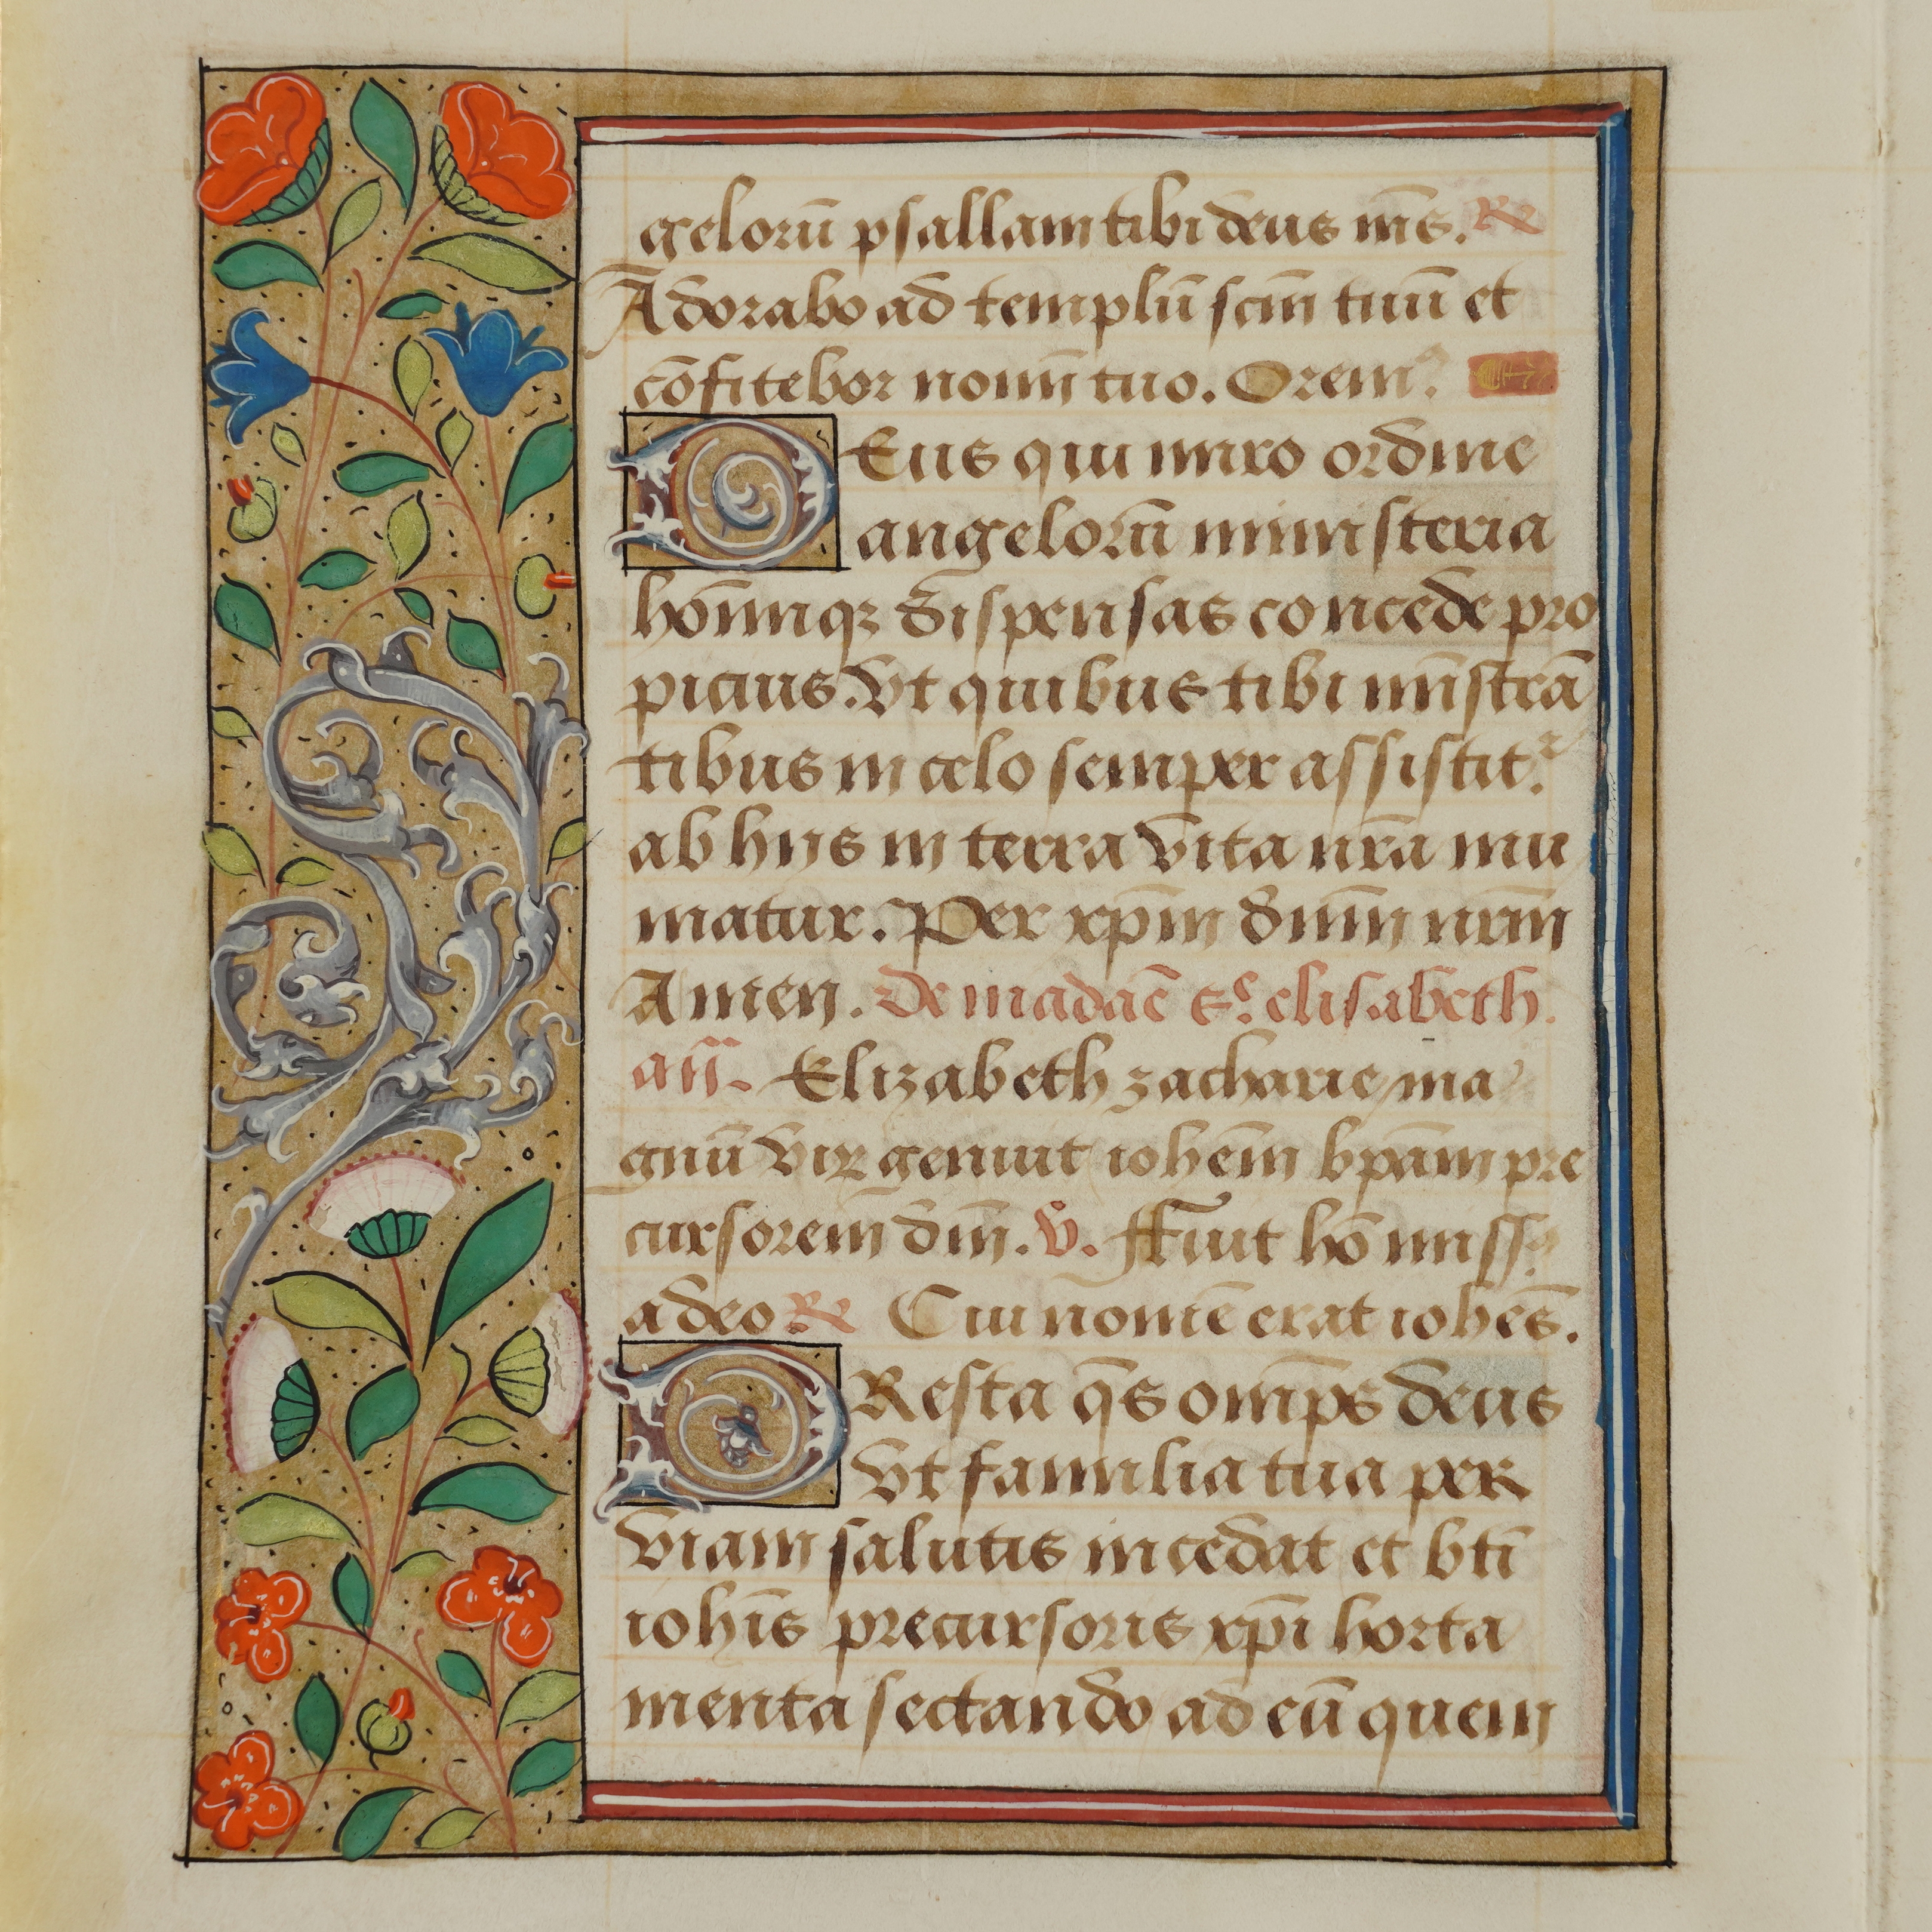 gelorū psallam tibi deus m̄s. ℟
Adorabo ad templū scm̄ tuū et
cōfitebor nomī tuo. Orem⁹.
DEus qui miro ordine
angelorū ministeria
hoīmqꝫ dispensas concede pro
picius. Vt quibus tibi mīstrā
tibus in celo semper assistit᷑.
ab hijs in terra vita nr̄a mu
niatur. Per xp̄m dn̄m nr̄m
Amen. De madāe sᵉ. elisabeth.
añ. Elizabeth zacharie ma
gnū vir̄ genuit ioh̄em bp̄am pre
cursorem dn̄i. ℣. ffuit hō miss⁹
a deo ℟ Cui nomē erat ioh̄es.
PResta q̄s omp̄s deus
Vt familia tua per
viam salutis incedat et bt̄i
ioh̄is precursoris xp̄i horta
menta sectando ad eū quem